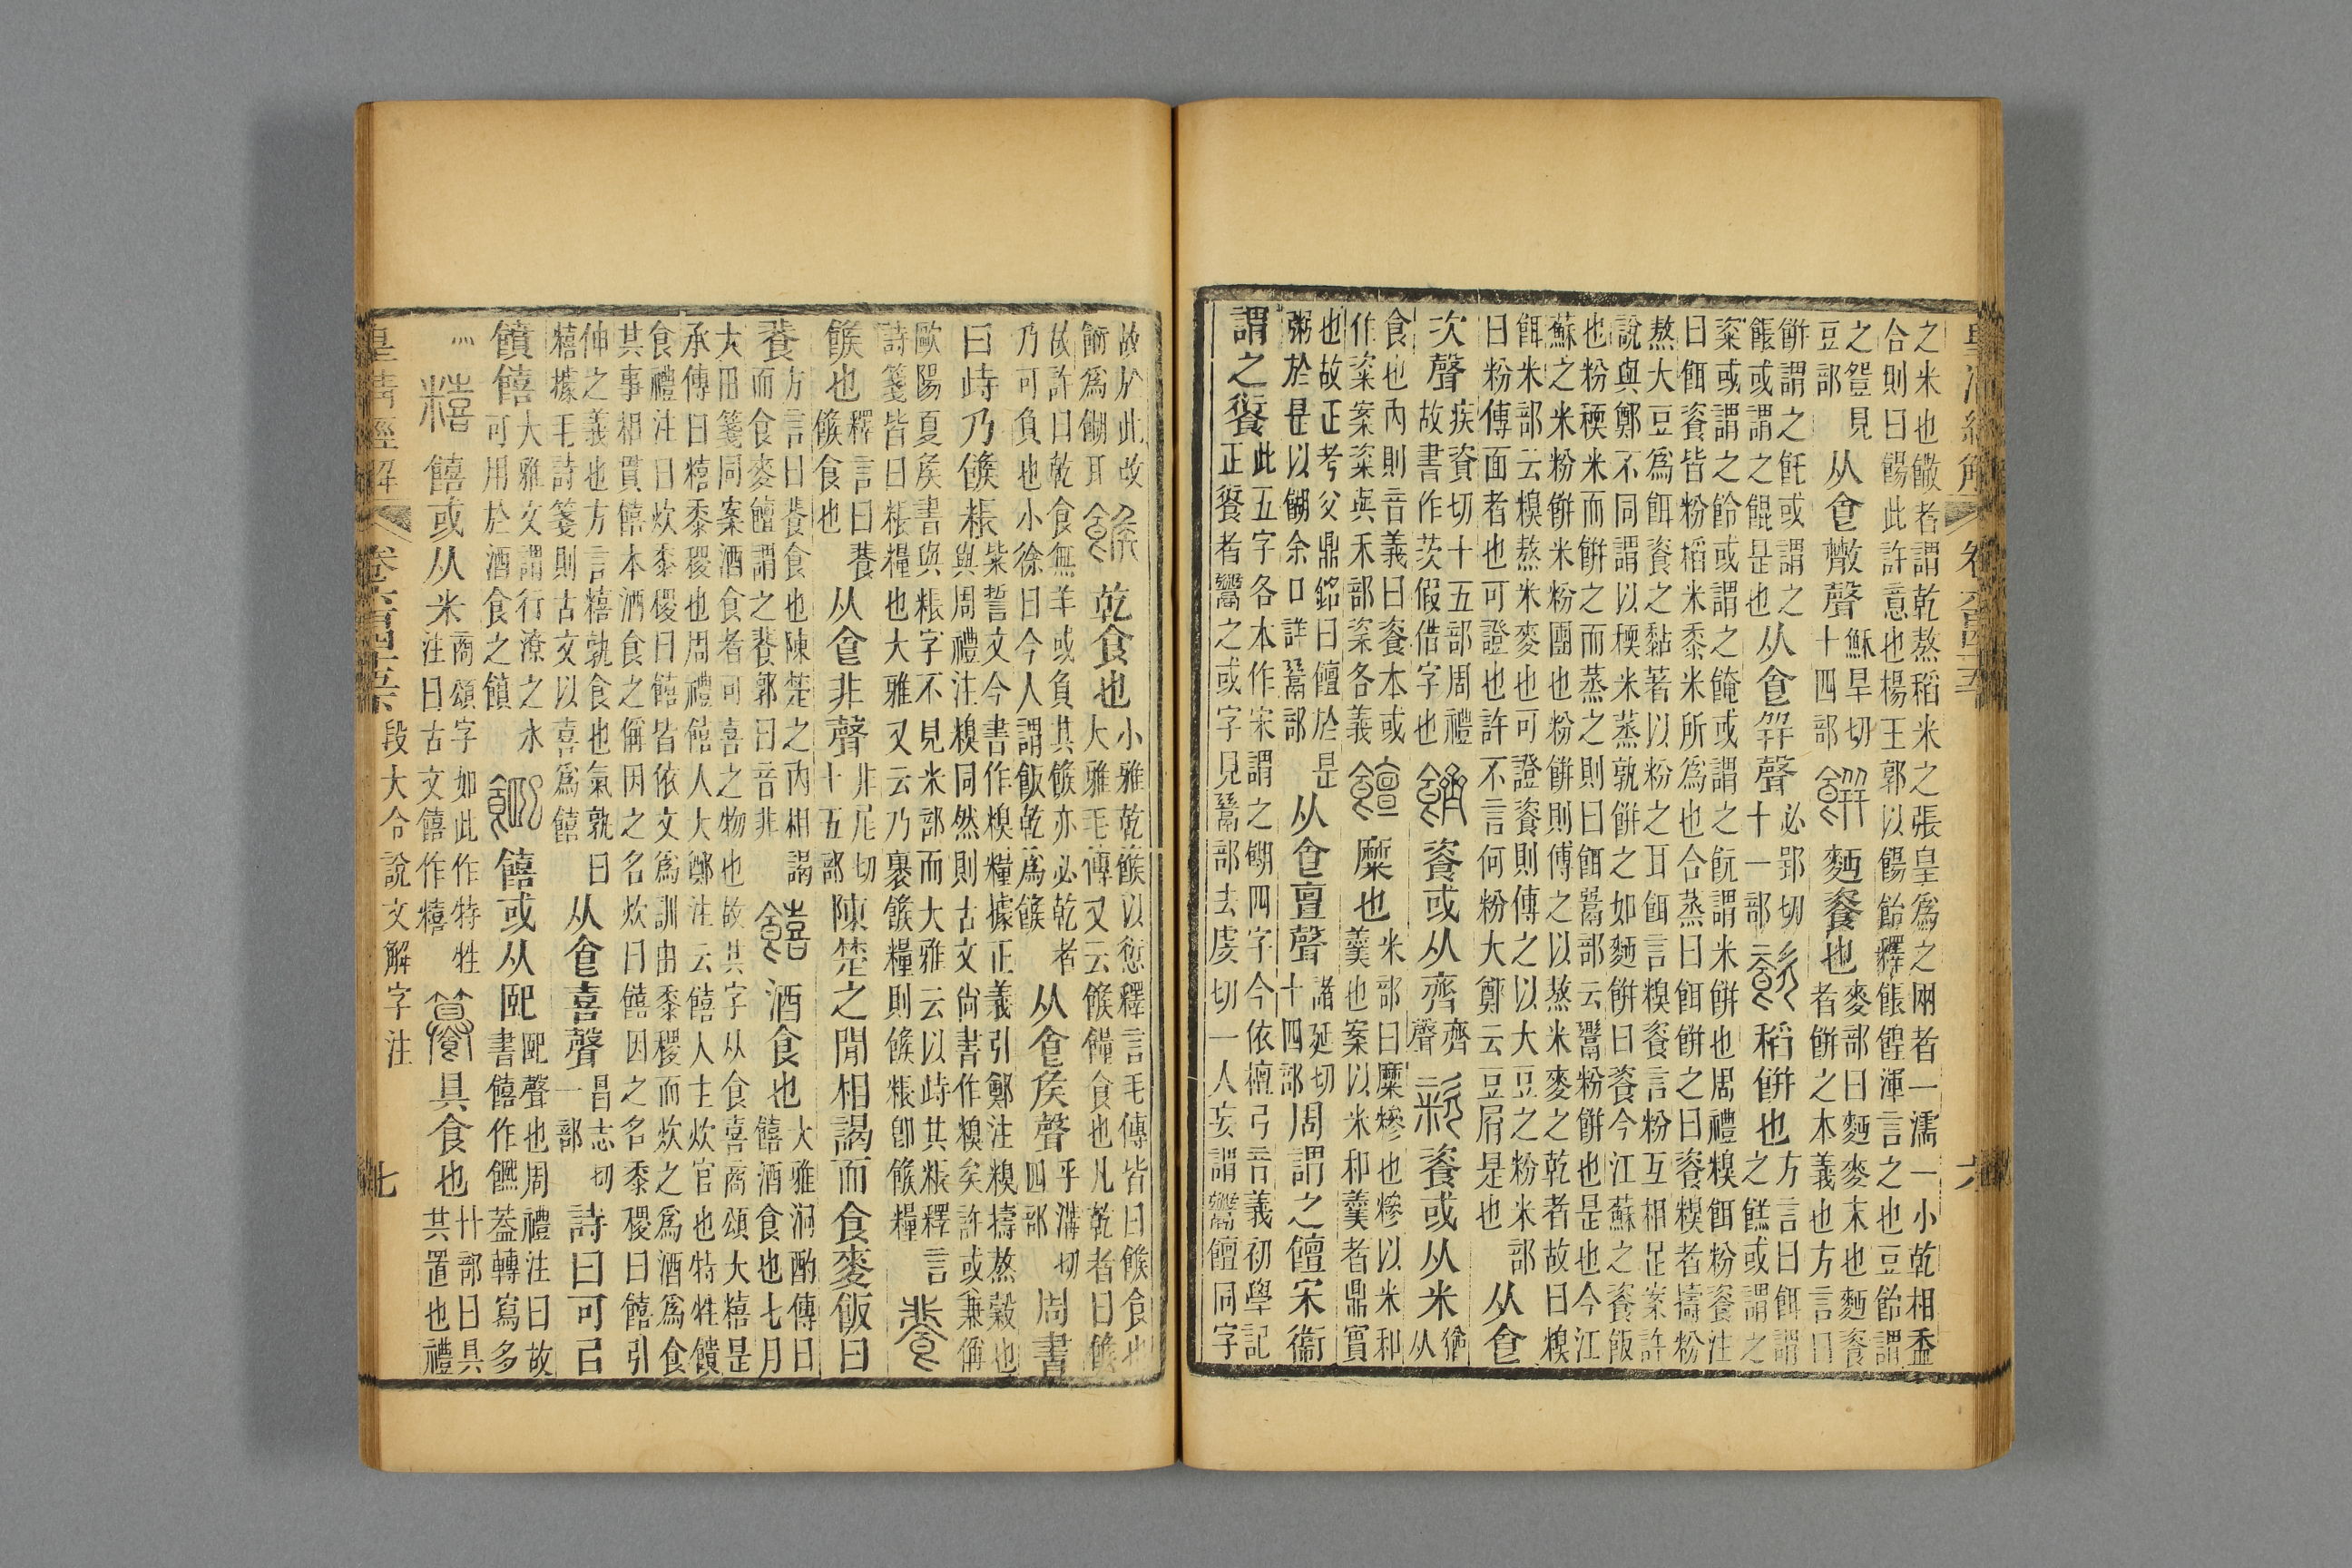 皇清經解 卷六百四十五 六
之米也饊者謂乾熬稻米之張皇爲之兩者一濡一小乾相盉
合則曰餳此許意也楊王郭以餳飴釋餦餭渾言之也豆飴謂
之䇺見豆部从𠊊㪔聲穌旱切十四部餅麪餈也麥部曰麪麥末也麪餈者餅之本義也方言曰
餅謂之飥或謂之餦或謂之餛是也从𠊊幷聲必郢切十一部餈稻餅也方言曰餌謂之餻或謂之
粢或謂之䬾或謂之䭇或謂之䬧謂米餅也周禮糗餌粉餈注
曰餌餈皆粉稻米黍米所爲也合蒸曰餌餅之曰餈糗者擣粉
熬大豆爲餌餈之黏著以粉之耳餌言糗餈言粉互相足案許
說與鄭不同謂以稬米蒸孰餅之如麪餅曰餈今江蘇之餈飯
也粉稬米而餅之而蒸之則曰餌鬻部云鬻粉餅也是也今江
蘇之米粉餅米粉團也粉餅則傅之以蒸米麥之乾者故曰糗
餌米部云糗熬米麥也可證餈則傅之以大豆之粉米部
曰粉傅面者也可證也許不言何粉大鄭云豆屑是也从𠊊
次聲疾資切十五部周禮故書作茨假借字也餈或从齊齊聲餈或从米猶从
食也內則音義曰餈本或作粢案粢與禾部粢各義饘糜也米部曰糜糝也糝以米和羹也案以米和羹者鼎實
也故正考父鼎銘曰饘於是粥於是以餬余口詳鬻部从𠊊亶聲諸延切十四部周謂之饘宋衞
謂之䬫此五字各本作宋謂之餬四字今依檀弓音義初學記正䬫者鬻之或字見鬻部去虔切一人妄謂鬻饘同字
故於此改餰爲餬耳餱乾食也小雅乾餱以愆釋言毛傳皆曰餱食也大雅毛傳又云餱糧食也凡乾者曰餱
故許曰乾食無羊或負其餱亦必乾者乃可負也小徐曰今人謂飯乾爲餱从𠊊矦聲乎溝切四部周書
曰峙乃餱粻柴誓文今書作糗糧據正義引鄭注糗擣熬穀也與周禮注糗同然則古文尙書作糗矣許或兼偁
歐陽夏矦書與粻字不見米部而大雅云以峙其粻釋言
詩箋皆曰粻糧也大雅又云乃裹餱糧則餱粻卽餱糧𩜲
餱也釋言曰𩜲餱食也从𠊊非聲非尾切十五部陳楚之閒相謁而食麥飯曰
𩜲方言曰𩜲食也陳楚之內相謁而食麥饘謂之𩜲郭曰音非饎酒食也大雅泂酌傳曰饎酒食也七月
大田箋同案酒食者可喜之物也故其字从食喜商頌大糦是
承傳曰糦黍稷也周禮饎人大鄭注云饎人主炊官也特牲饋
食禮注曰炊黍稷曰饎皆依文爲訓由黍稷而炊之爲酒爲食
其事相貫饎本酒食之偁因之名炊曰饎因之名黍稷曰饎引
伸之義也方言糦孰食也氣孰曰
糦據毛詩箋則古文以喜爲饎从𠊊喜聲昌志切一部詩曰可㠯
饙饎大雅文謂行潦之水可用於酒食之饙饎或从巸巸聲也周禮注曰故書饎作䊠蓋轉寫多
灬糦饎或从米商頌字如此作特牲注曰古文饎作糦籑具食也廾部曰具共置也禮
皇清經解 卷六百四十五 段大令說文解字注 七